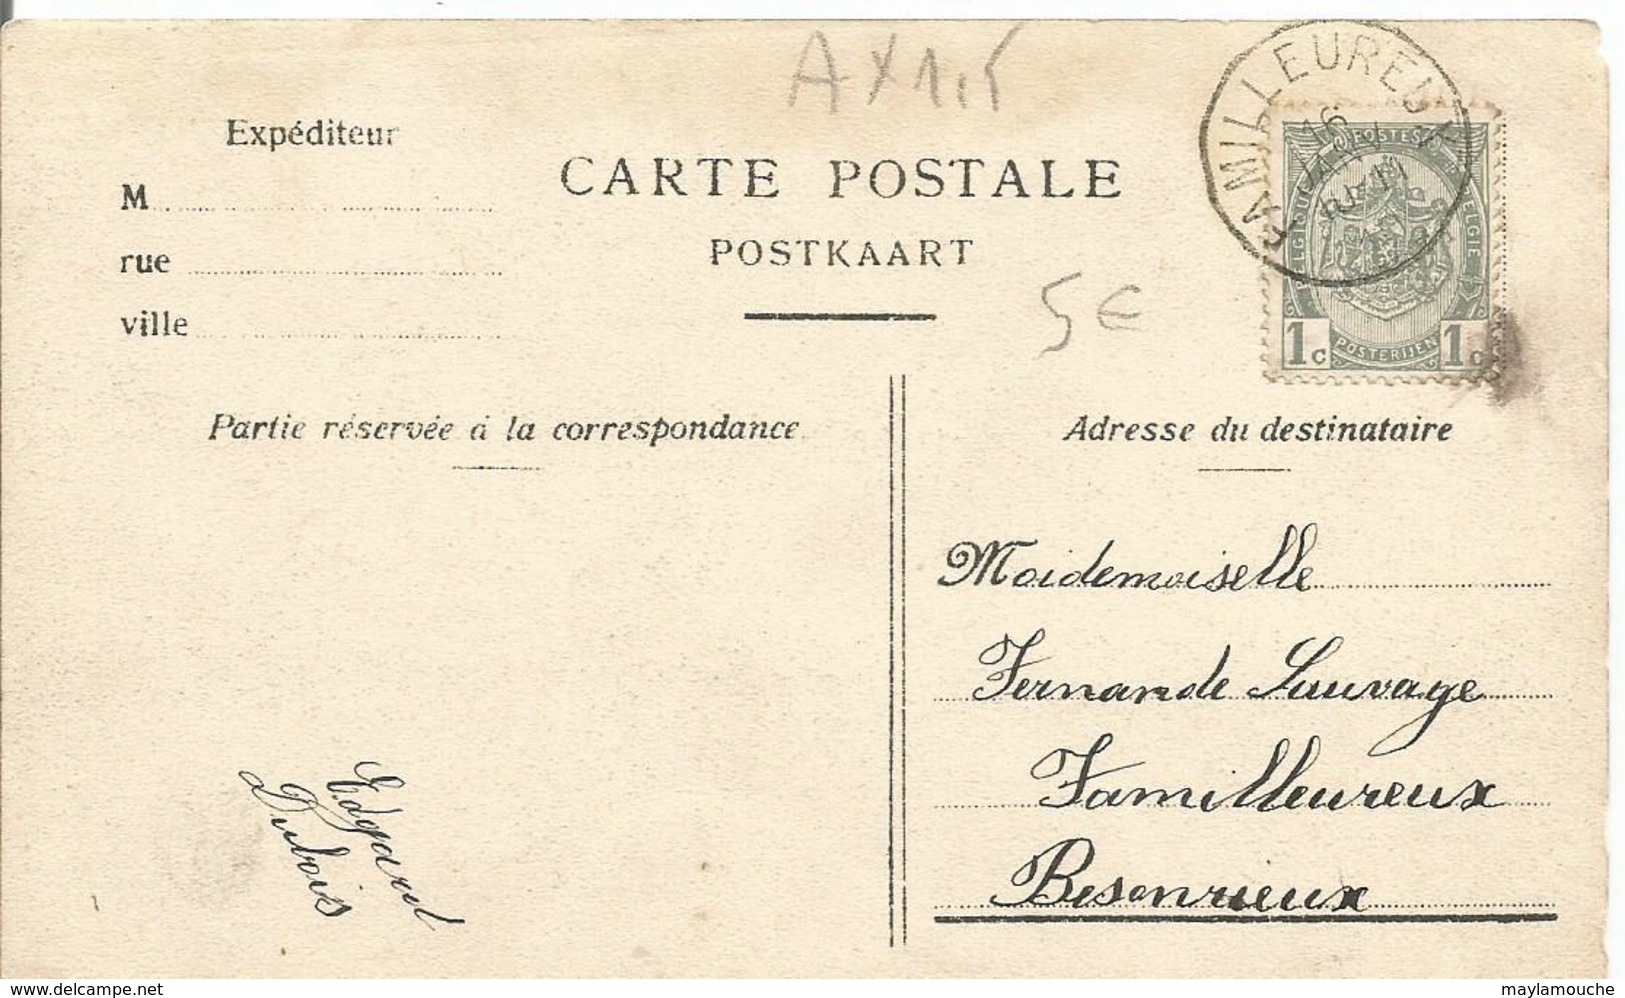 A X 1,5
Expéditeur
M
rue
ville
CARTE POSTALE
POSTKAART
5€
FAMILLEUREUX
16
JANV
POSTES
BELGIQUE
BELGIE
1c
POSTERIJEN
1c
Partie réservée à la correspondance
Adresse du destinataire
Maidemoiselle
Fernande Sauvage
Familleureux
Besonrieux
Edgard
Dubois
www.delcampe.net
maylamouche